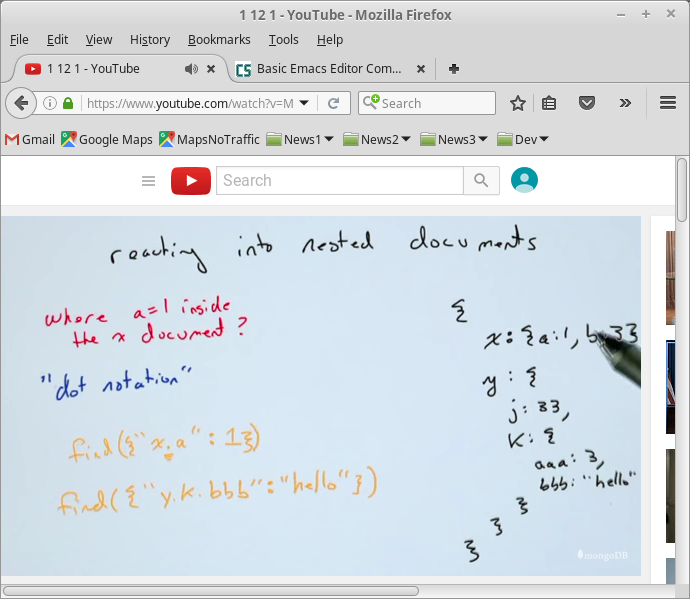 1 12 1 - YouTube - Mozilla Firefox
File Edit View History Bookmarks Tools Help
1 12 1 - YouTube
Basic Emacs Editor Com...
https://www.youtube.com/watch?v=M
Search
Gmail Google Maps MapsNoTraffic News1 News2 News3 Dev
Search
reacting into nested documents
where a=1 inside
the x document?
"dot notation"
find({"x.a":1})
find({"y.k.bbb":"hello"})
{
x: {a:1, b:33}
y: {
j: 33,
k: {
aaa: 3,
bbb: "hello"
}
}
}
mongoDB